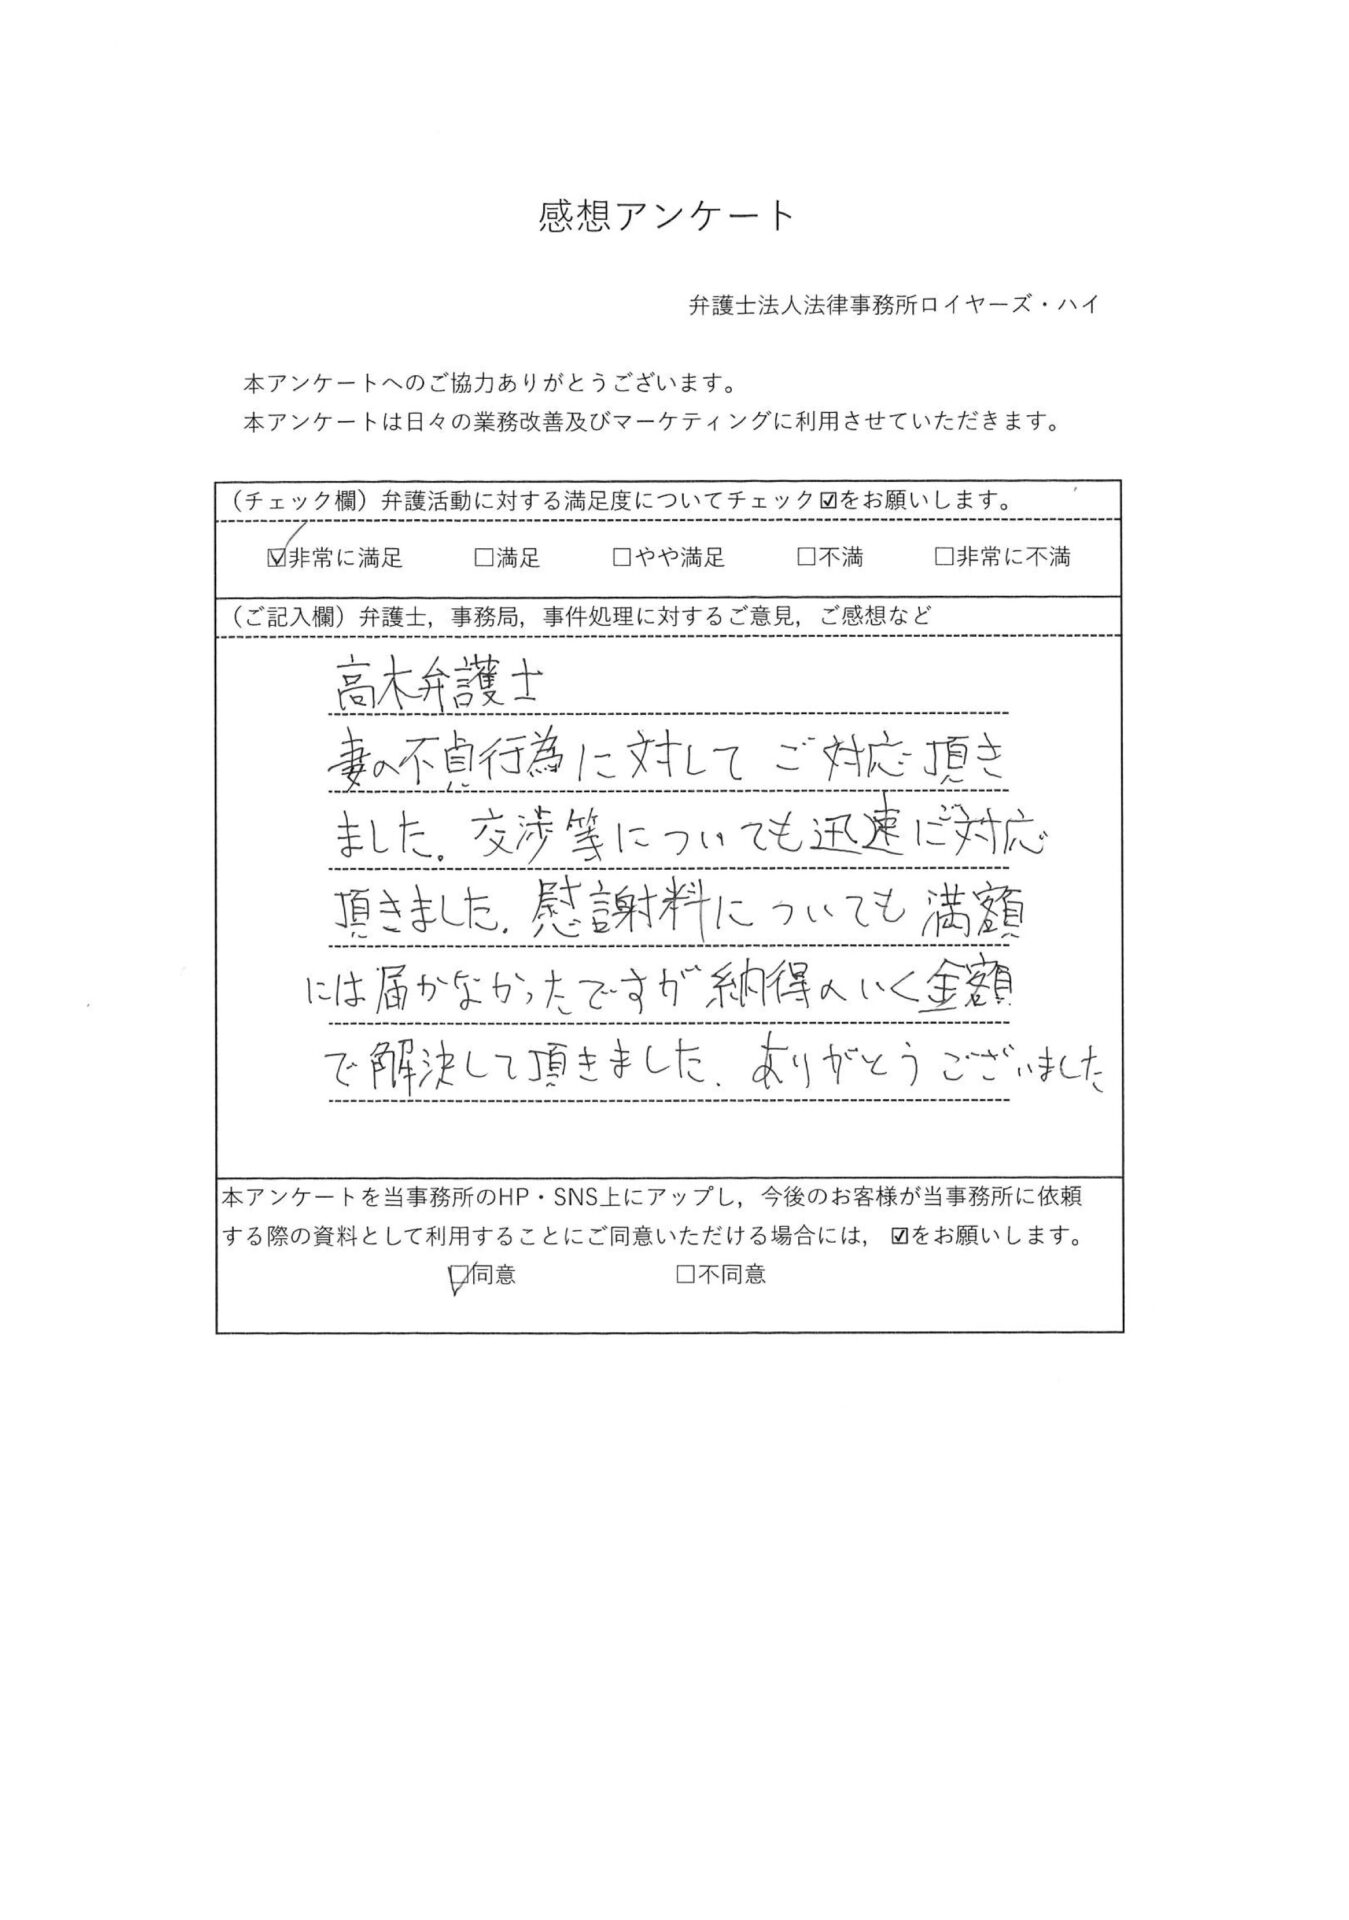 感想アンケート
弁護士法人法律事務所ロイヤーズ・ハイ
本アンケートへのご協力ありがとうございます。
本アンケートは日々の業務改善及びマーケティングに利用させていただきます。
（チェック欄）弁護活動に対する満足度についてチェック☑をお願いします。
☑非常に満足 □満足 □やや満足 □不満 □非常に不満
（ご記入欄）弁護士，事務局，事件処理に対するご意見，ご感想など
高木弁護士
妻の不貞行為に対して ご対応頂き
ました。交渉等についても迅速にご対応
頂きました。慰謝料についても満額
には届かなかったですが納得のいく金額
で解決して頂きました。ありがとうございました
本アンケートを当事務所のHP・SNS上にアップし，今後のお客様が当事務所に依頼
する際の資料として利用することにご同意いただける場合には，☑をお願いします。
☑同意 □不同意